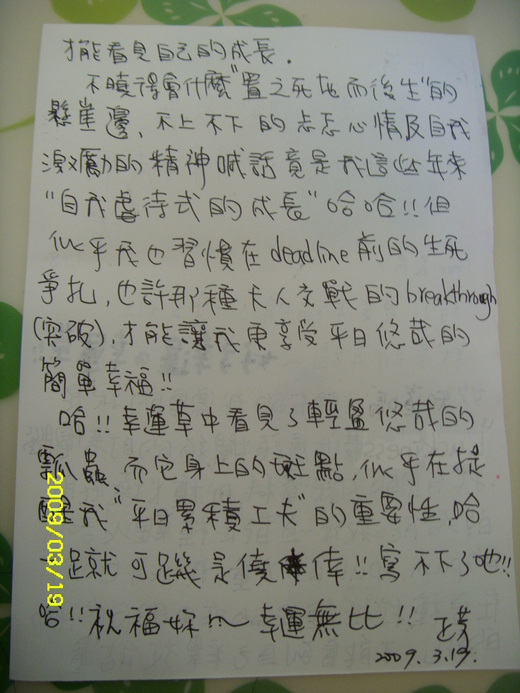 才能看見自己的成長.
不曉得會什麼"置之死地而後生"的
懸崖邊、不上不下的忐忑心情及自我
激勵的精神喊話竟是我這些年來
"自我虐待式的成長"哈哈!!但
似乎我也習慣在deadline前的生死
爭扎,也許那種天人交戰的breakthrough
(突破),才能讓我更享受平日悠哉的
簡單幸福!!
哈!!幸運草中看見了輕盈悠哉的
瓢蟲、而它身上的斑點,似乎在提
醒我"平日累積工夫"的重要性,哈
一蹴就可躋是僥倖!!寫不下了吔!!
哈!!祝福妳~幸運無比!!
2009.3.19.
2009/03/19